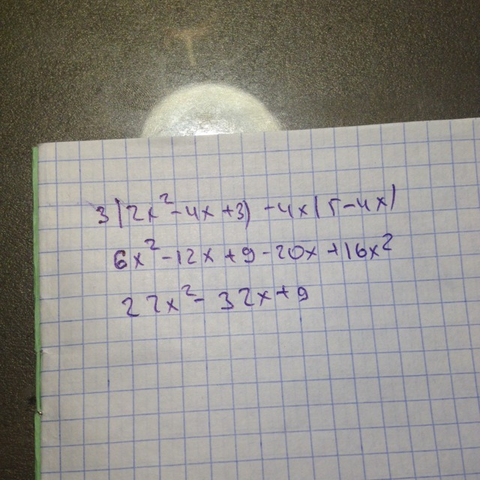 3(2x²-4x+3)-4x(5-4x)
6x²-12x+9-20x+16x²
22x²-32x+9